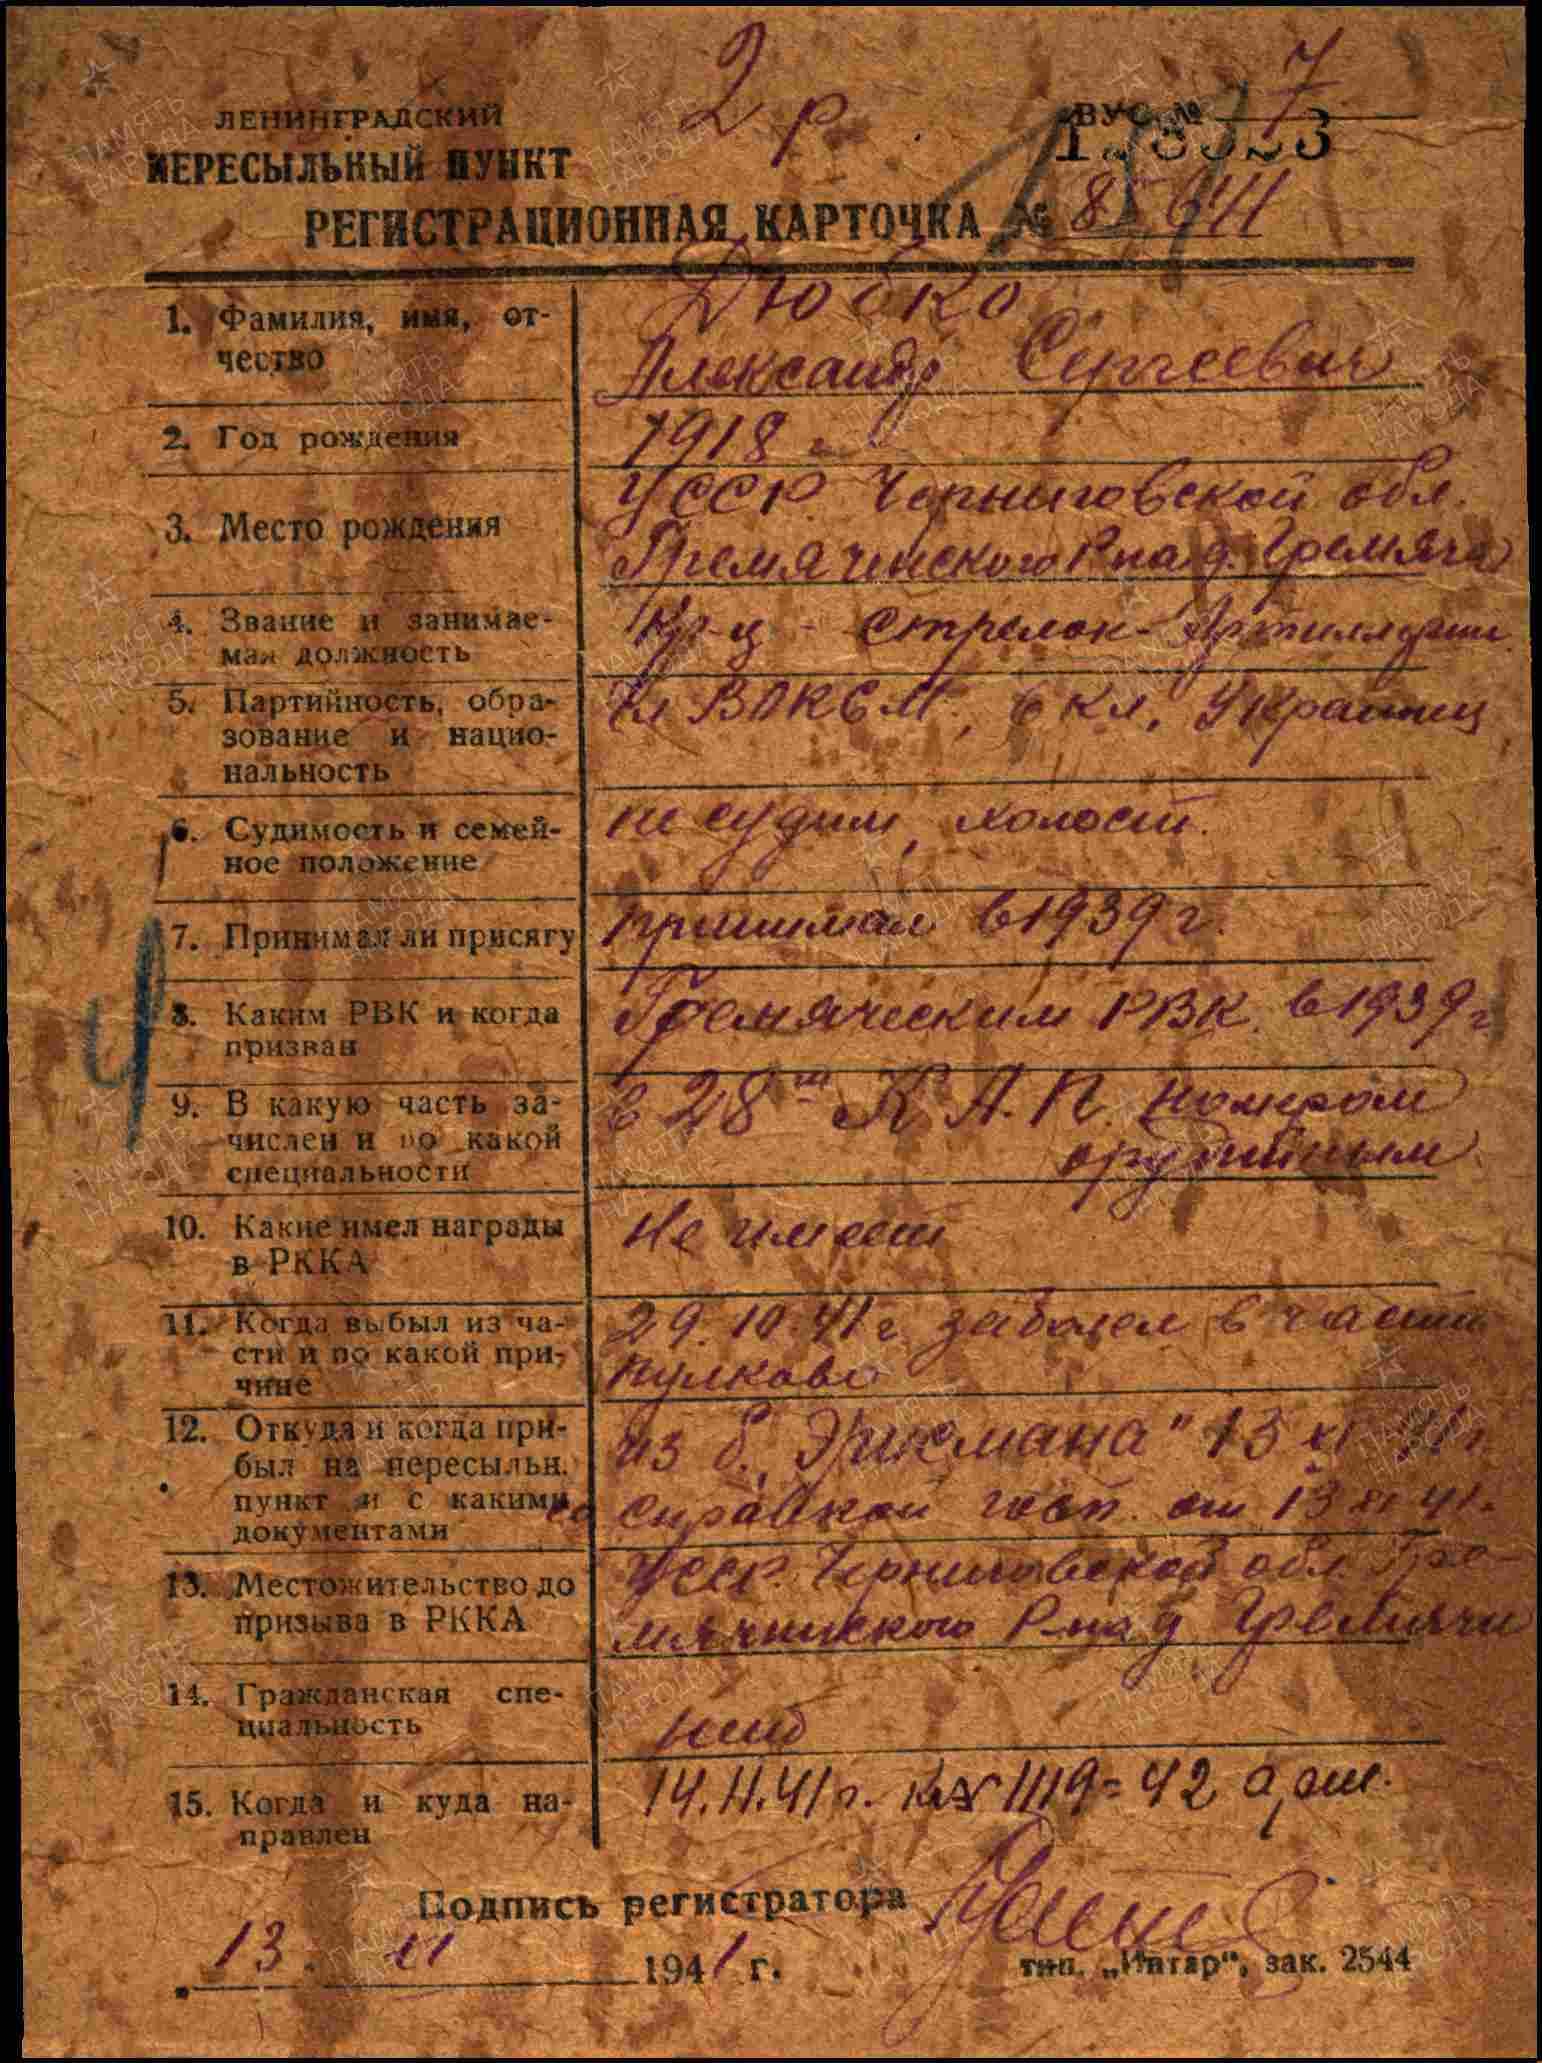 2 р.
ВУС № 7
ЛЕНИНГРАДСКИЙ
ПЕРЕСЫЛЬНЫЙ ПУНКТ
РЕГИСТРАЦИОННАЯ КАРТОЧКА №
1. Фамилия, имя, от-
чество
Дюбко
Александр Сергеевич
2. Год рождения
1918 г.
3. Место рождения
УССР. Черниговской обл.
Гремяченского Р-на д. Гремяча
4. Звание и занимае-
мая должность
Кр-ц - стрелок- Артиллерии
5. Партийность, обра-
зование и нацио-
нальность
Чл ВЛКСМ., 6 кл. Украинец
6. Судимость и семей-
ное положение
не судим, холост.
7. Принимал ли присягу
принимал в 1939 г.
8. Каким РВК и когда
призван
Гремяческим РВК. в 1939 г.
9. В какую часть за-
числен и по какой
специальности
в 28ш К.А.П. номером
орудийным
10. Какие имел награды
в РККА
Не имеет
11. Когда выбыл из ча-
сти и по какой при-
чине
29.10.41 г заболел в части
Пулково
12. Откуда и когда при-
был на пересыльн.
пункт и с какими
документами
из б. „Эрисмана" 13 XI 41 г.
со справкой госп. от 13 XI 41г.
13. Местожительство до
призыва в РККА
УССР. Черниговской обл. Гре-
мячинского Р-на д Гремячи
14. Гражданская спе-
циальность
нет
15. Когда и куда на-
правлен
14.11.41 г. 1119 = 42 арт.
Подпись регистратора
13. XI 1941 г.
тип. „Интар", зак. 2544
ПАМЯТЬ
НАРОДА